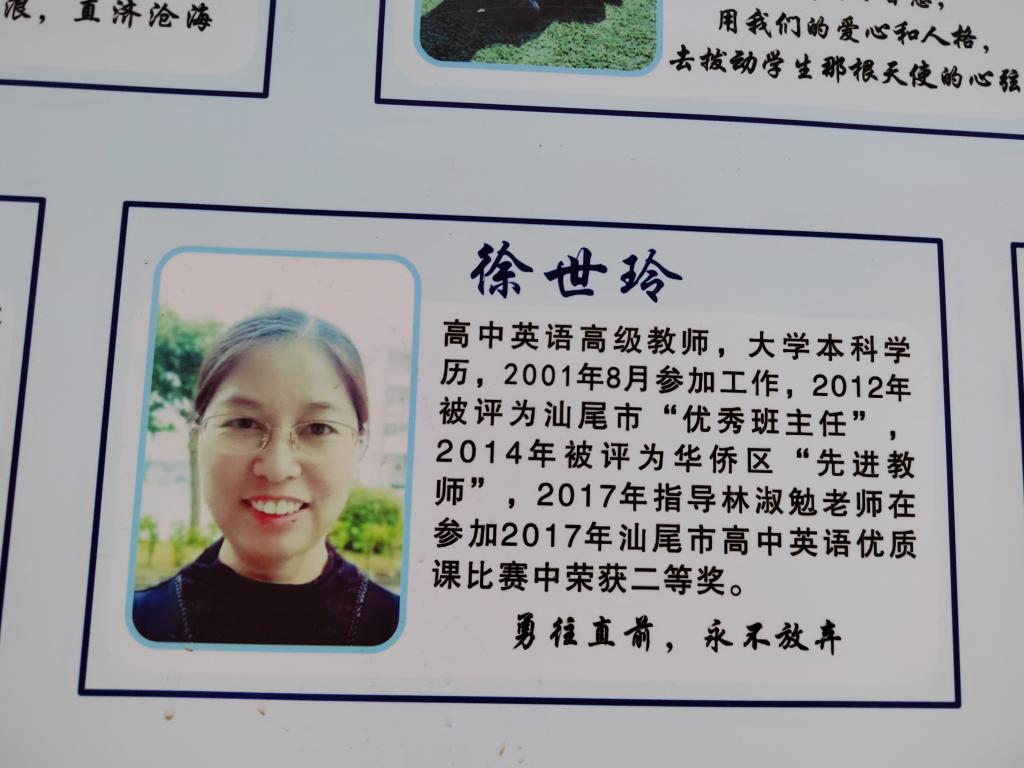 浪，直济沧海
用我们的爱心和人格，
去拨动学生那根天使的心弦
徐世玲
高中英语高级教师，大学本科学
历，2001年8月参加工作，2012年
被评为汕尾市“优秀班主任”，
2014年被评为华侨区“先进教
师”，2017年指导林淑勉老师在
参加2017年汕尾市高中英语优质
课比赛中荣获二等奖。
勇往直前，永不放弃